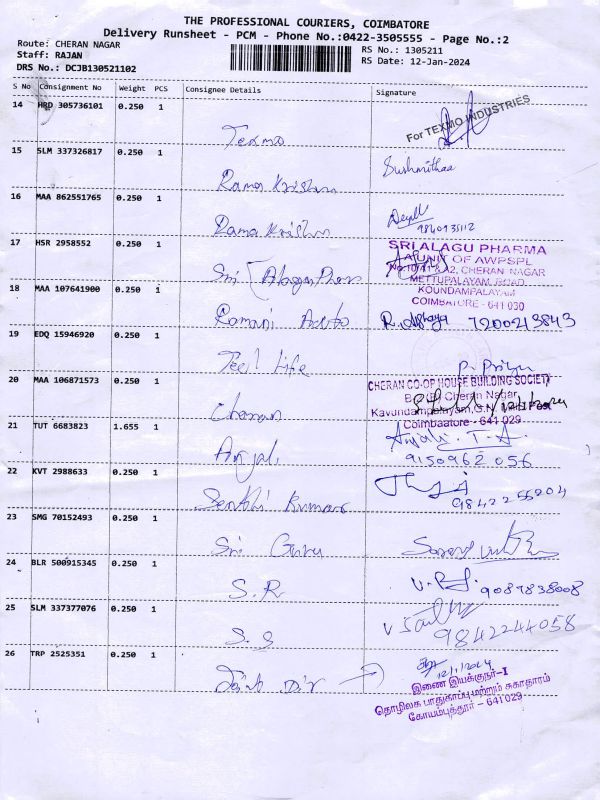 THE PROFESSIONAL COURIERS, COIMBATORE
Delivery Runsheet - PCM - Phone No.:0422-3505555 - Page No.:2
Route: CHERAN NAGAR
RS No.: 1305211
Staff: RAJAN
RS Date: 12-Jan-2024
DRS No.: DCJB130521102
S No Consignment No Weight PCS Consignee Details Signature
14 HRD 305736101 0.250 1
For TEXMO INDUSTRIES
Texmo
15 SLM 337326817 0.250 1
Sushmithaa
Rama Krishna
16 MAA 862551765 0.250 1
Rama Krishna
17 HSR 2958552 0.250 1
SRI ALAGU PHARMA
A UNIT OF AWPSPL
CHERAN NAGAR
METTUPALAYAM ROAD
Sri Alagu Phar
18 MAA 107641900 0.250 1
KOUNDAMPALAYAM
COIMBATORE - 641 030
Ramani Auto
7200213843
19 EDQ 15946920 0.250 1
Teel Life
P. Priya
20 MAA 106871573 0.250 1
CHERAN CO-OP HOUSE BUILDING SOCIETY
Cheran Nagar
Kavundampalayam, G.N. Mill Post
Cheran
21 TUT 6683823 1.655 1
Coimbaatore - 641 029
Anjali. T.A.
Anjali
9150962056
22 KVT 2988633 0.250 1
9842256204
Senthil Kumar
23 SMG 70152493 0.250 1
Sri Guru
24 BLR 500915345 0.250 1
9087838008
S.R
25 SLM 337377076 0.250 1
9842244058
S.S
26 TRP 2525351 0.250 1
12/1/2024
இணை இயக்குநர்-I
தொழிலக பாதுகாப்பு மற்றும் சுகாதாரம்
கோயம்புத்தூர் - 641 029